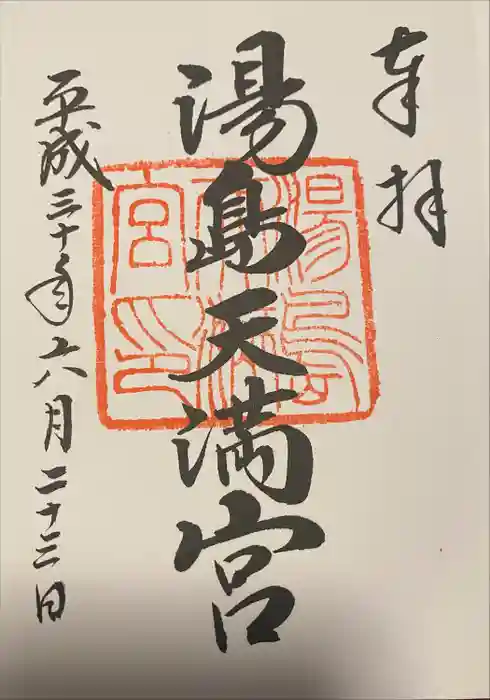 奉拝
湯島天満宮
湯島天満宮印
平成三十年六月二十三日